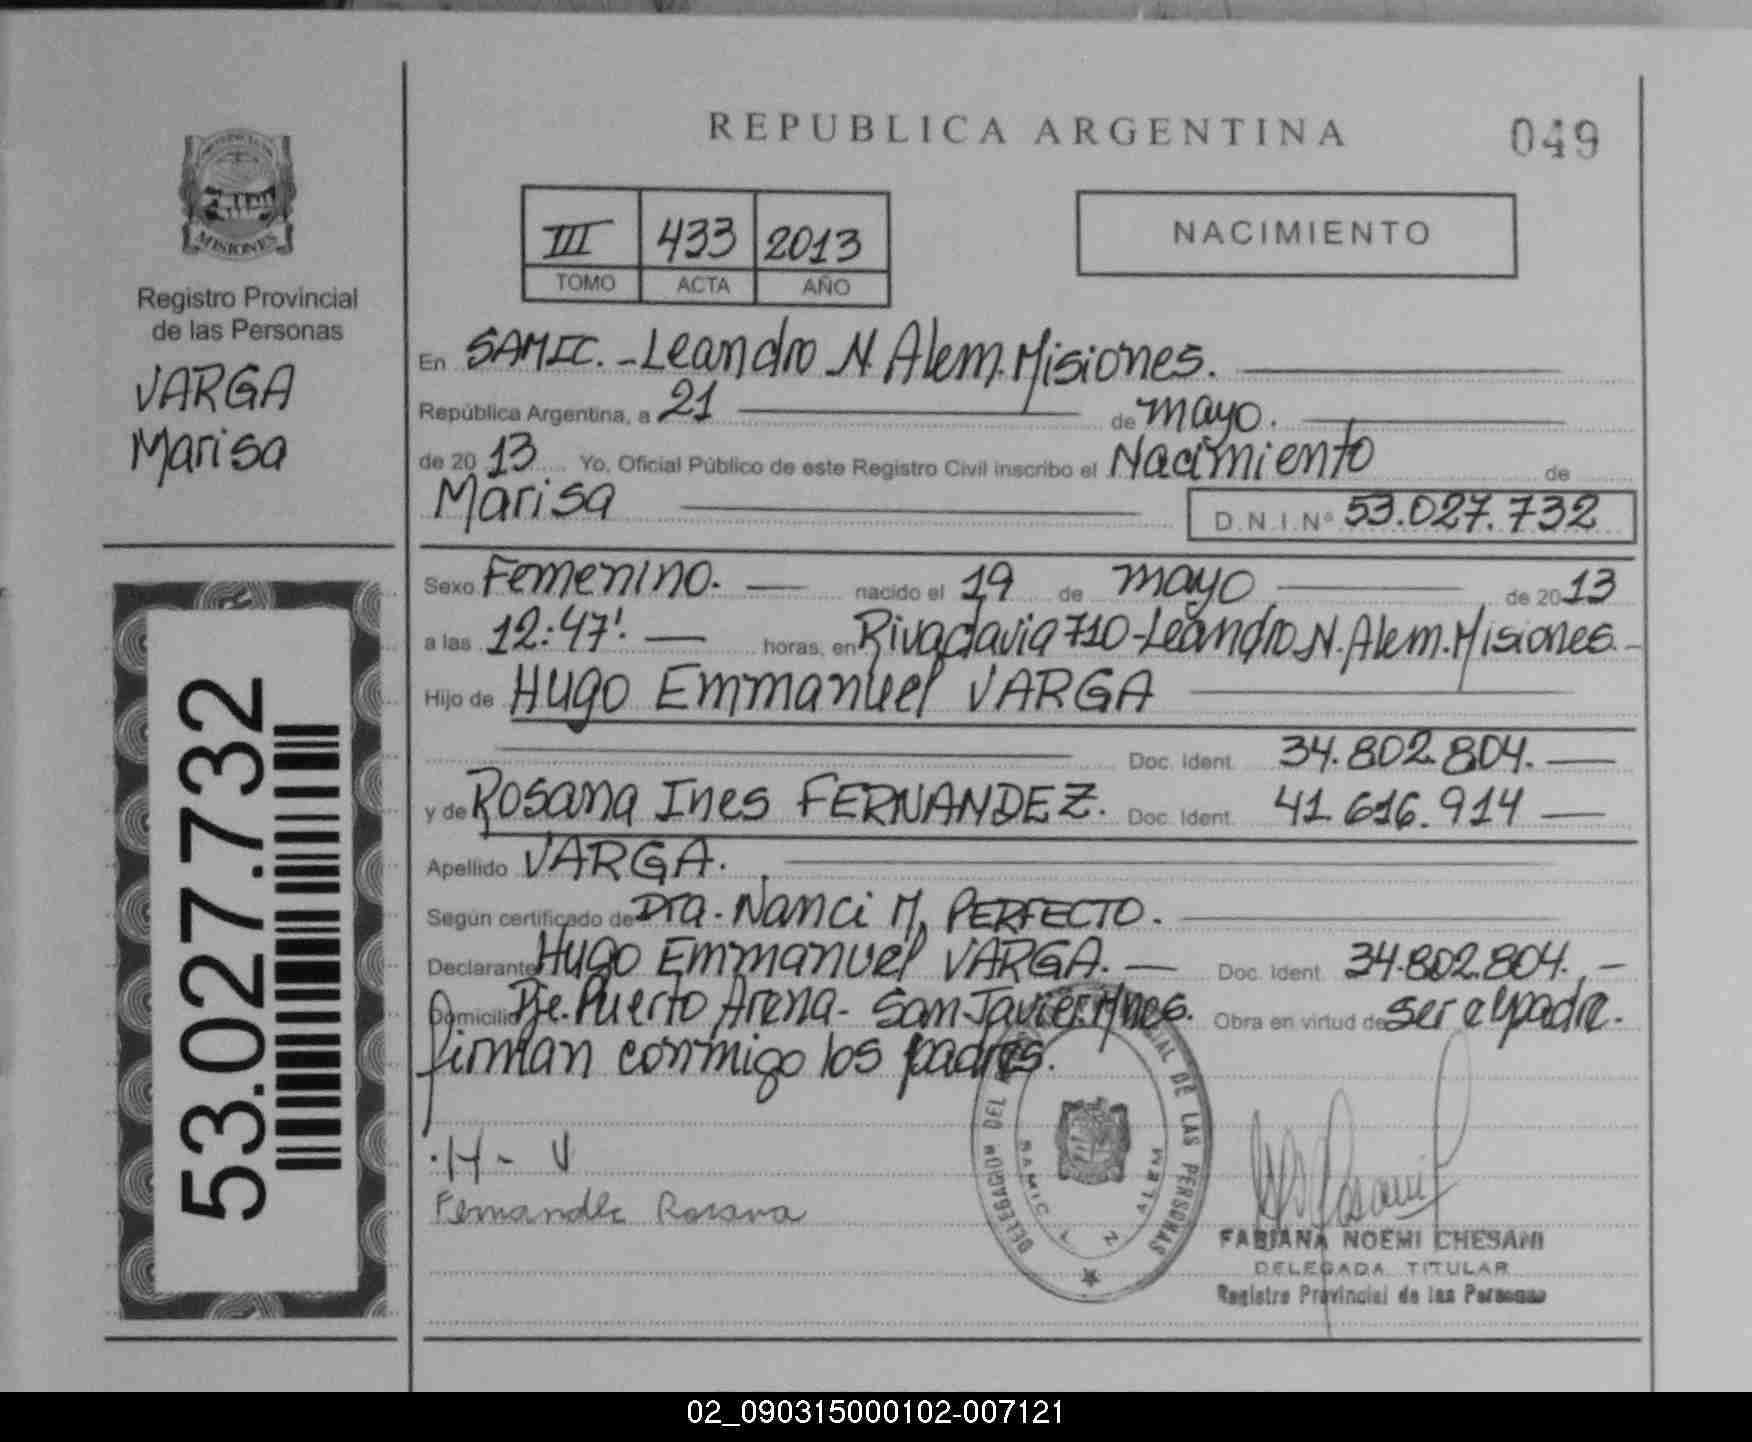 REPUBLICA ARGENTINA
049
MISIONES
Registro Provincial
de las Personas
VARGA
Marisa
III 433 2013
TOMO ACTA AÑO
NACIMIENTO
En SAMIC. - Leandro N. Alem. Misiones.
República Argentina, a 21 de mayo.
de 20 13 Yo, Oficial Público de este Registro Civil inscribo el Nacimiento de
Marisa D.N.I.Nº 53.027.732
Sexo Femenino. nacido el 19 de mayo de 20 13
a las 12:47'. horas, en Rivadavia 710 - Leandro N. Alem. Misiones. -
Hijo de Hugo Emmanuel VARGA
Doc. Ident. 34.802.804.
y de Rosana Ines FERNANDEZ. Doc. Ident. 41.616.914
Apellido VARGA.
Según certificado de Dra. Nanci M. PERFECTO.
Declarante Hugo Emmanuel VARGA. Doc. Ident. 34.802.804. -
Domicilio Pje. Puerto Arena - San Javier. Mnes. Obra en virtud de ser el padre.
firman conmigo los padres.
H - V
Fernandez Rosana
DELEGACION DEL DE LAS PERSONAS
SAMIC L N ALEM
FABIANA NOEMI CHESANI
DELEGADA TITULAR
Registro Provincial de las Personas
53.027.732
02_090315000102-007121